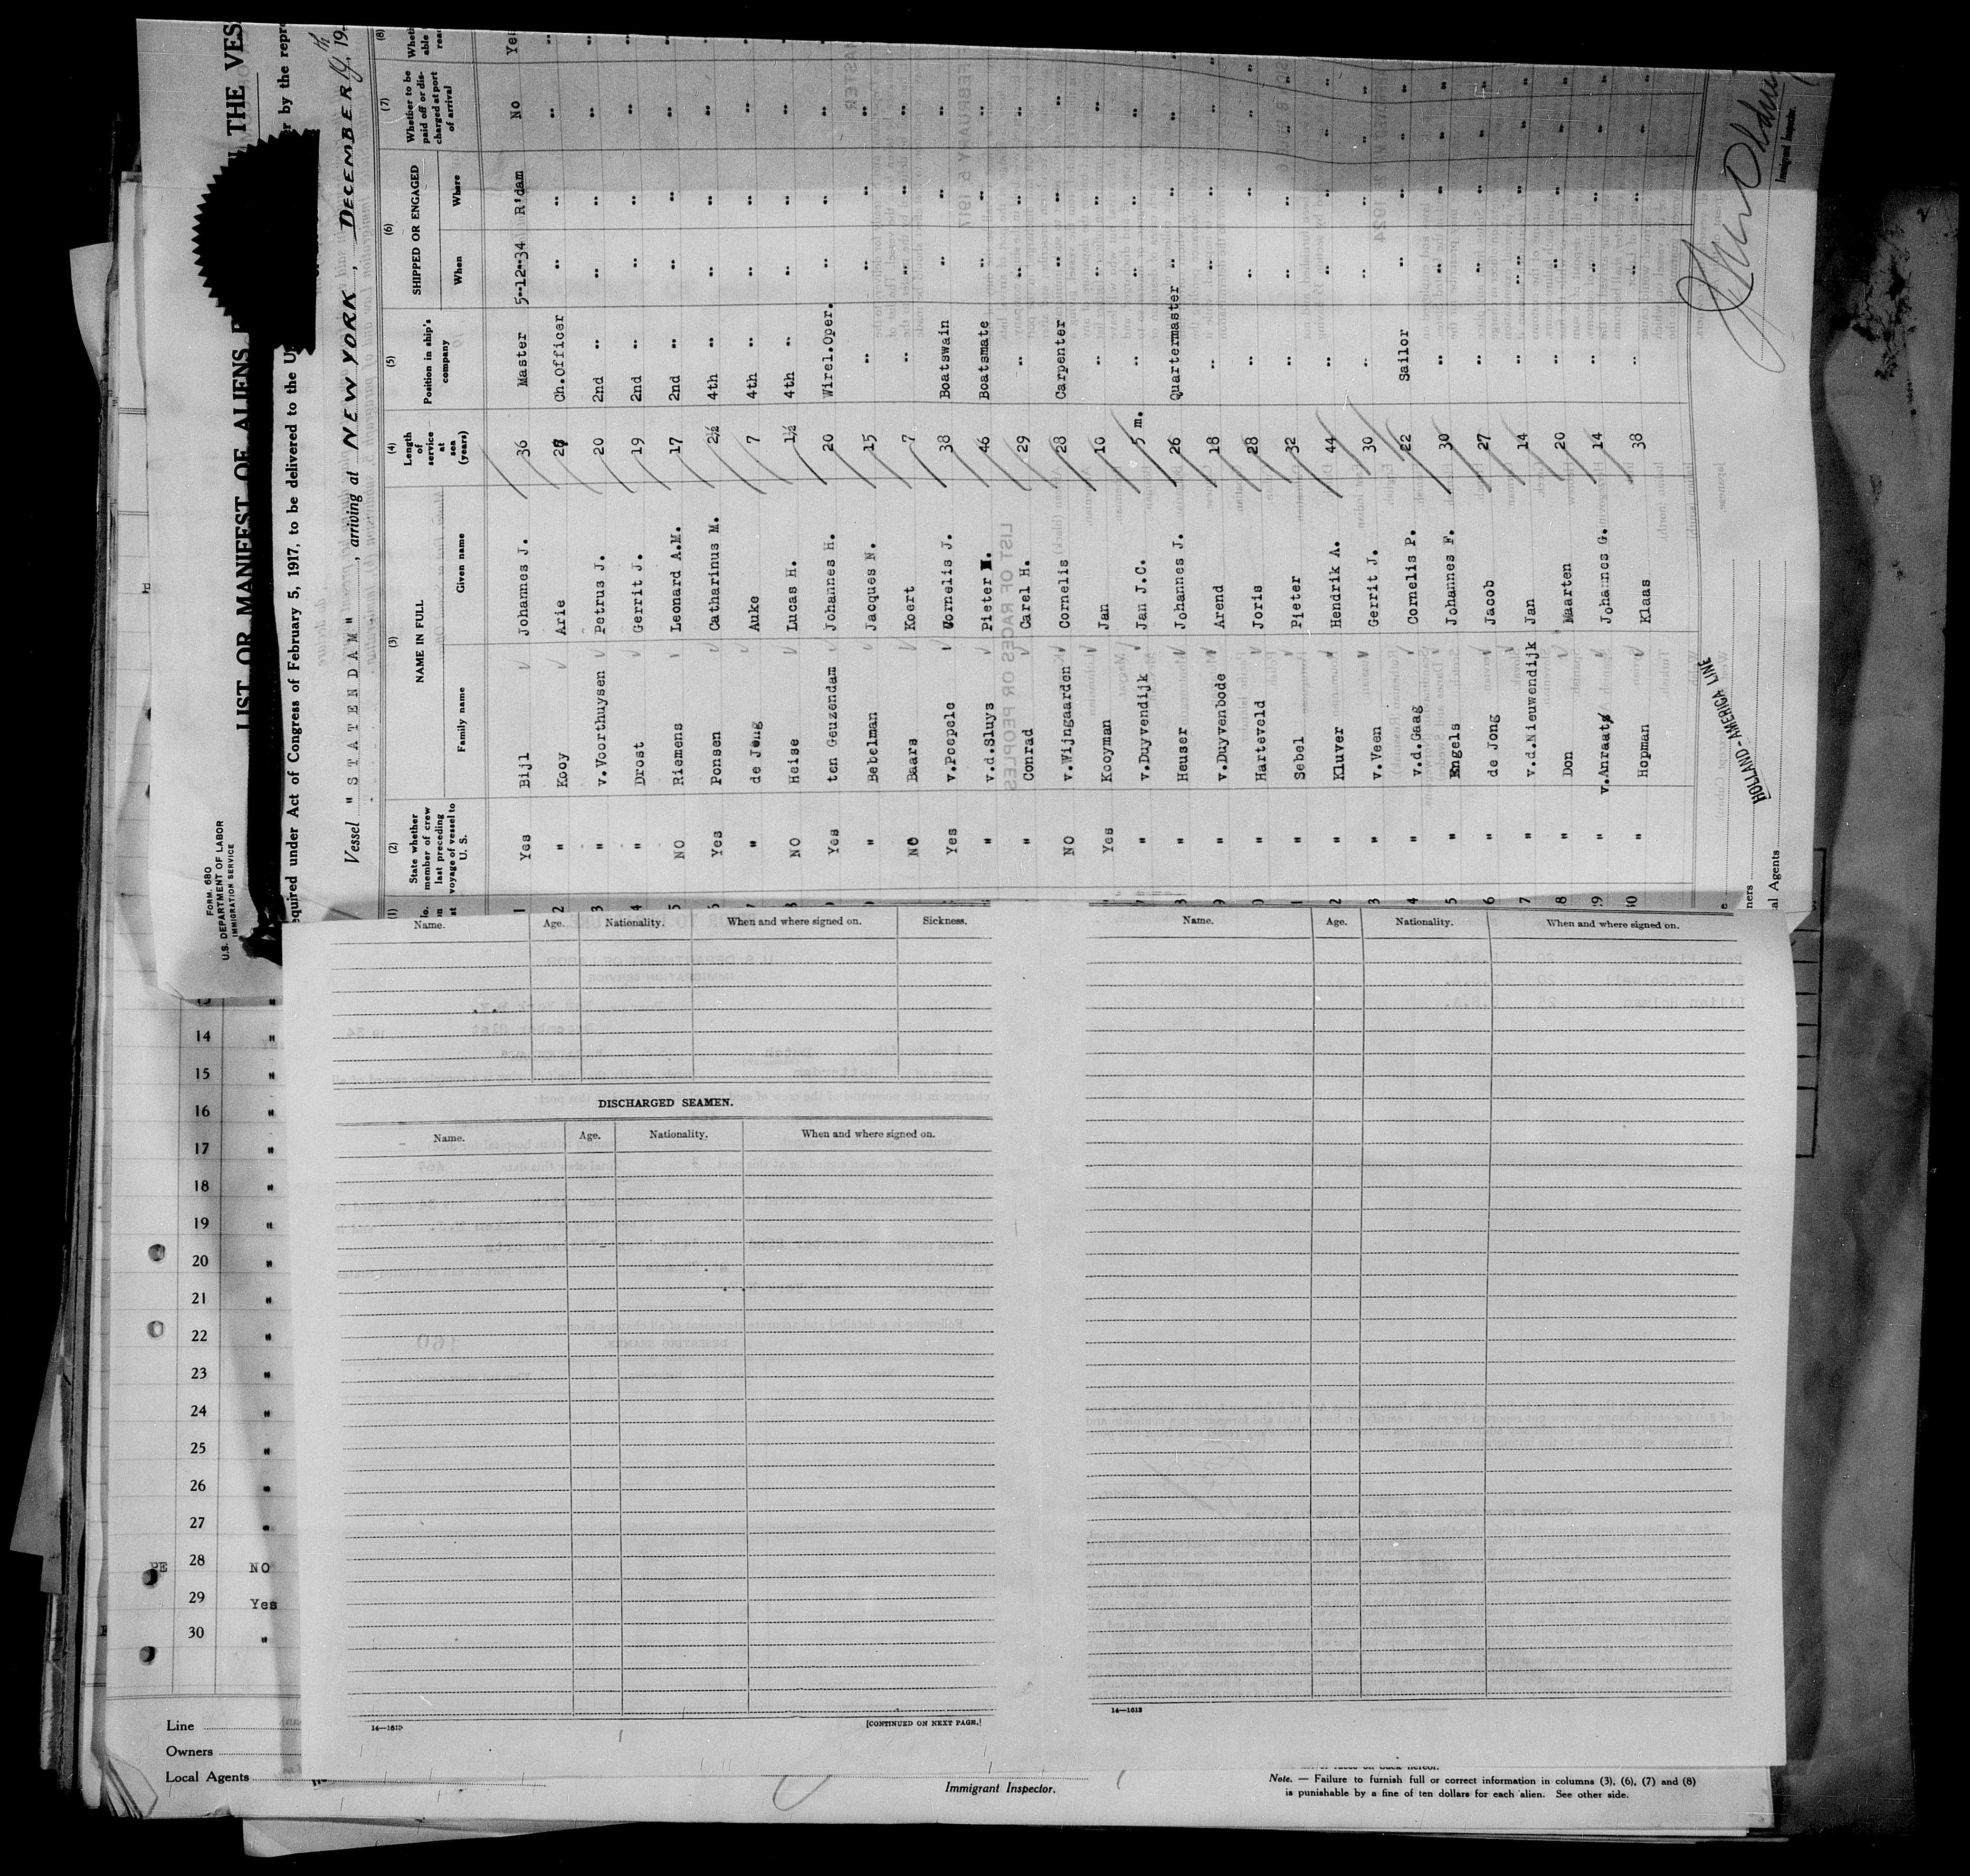 FORM 680
U.S. DEPARTMENT OF LABOR
IMMIGRATION SERVICE
LIST OR MANIFEST OF ALIENS THE VES
equired under Act of Congress of February 5, 1917, to be delivered to the U r by the repre
Vessel "STATENDAM", arriving at NEW YORK, DECEMBER 19
(1) (2) (3) (4) (5) (6) (7) (8)
State whether member of crew last preceding voyage of vessel to U. S.
NAME IN FULL
Family name Given name
Length of service at sea (years)
Position in ship's company
SHIPPED OR ENGAGED
When Where
Whether to be paid off or discharged at port of arrival
1 Yes Bijl Johannes J. 36 Master 5-12-34 R'dam No Yes
2 " Kooy Arie Ch.Officer " " " "
3 " v.Voorthuysen Petrus J. 20 2nd " " " " "
4 " Drost Gerrit J. 19 2nd " " " " "
5 NO Riemens Leonard A.M. 17 2nd " " " " "
6 Yes Ponsen Catharinus M. 2½ 4th " " " " "
7 " de Jong Auke 7 4th " " " " "
8 NO Heise Lucas H. 1½ 4th " " " " "
9 Yes ten Geuzendam Johannes H. 20 Wirel.Oper. " " " "
" Bebelman Jacques N. 15 " " " " "
NO Baars Koert 7 " " " " "
Yes v.Poepele Cornelis J. 38 Boatswain " " " "
" v.d.Sluys Pieter 46 Boatsmate " " " "
" Conrad Carel H. 29 " " " " "
NO v.Wijngaarden Cornelis 28 Carpenter " " " "
Yes Kooyman Jan 10 " " " " "
" v.Duyvendijk Jan J.C. 5 m. " " " " "
8 " Heuser Johannes J. 26 Quartermaster " " " "
9 " v.Duyvenbode Arend 18 " " " " "
0 " Harteveld Joris 28 " " " " "
1 " Sebel Pieter 32 " " " " "
2 " Kluver Hendrik A. 44 " " " " "
3 " v.Veen Gerrit J. 30 " " " " "
4 " v.d.Gaag Cornelis P. 22 Sailor " " " "
5 " Engels Johannes F. 30 " " " " "
6 " de Jong Jacob 27 " " " " "
7 " v.d.Nieuwendijk Jan 14 " " " " "
8 " Don Maarten 20 " " " " "
29 " v.Anraat Johannes G. 14 " " " " "
30 " Hopman Klaas 38 " " " " "
HOLLAND-AMERICA LINE
Immigrant Inspector.
ners
al Agents
Name. Age. Nationality. When and where signed on. Sickness.
DISCHARGED SEAMEN.
Name. Age. Nationality. When and where signed on.
14—1613
[CONTINUED ON NEXT PAGE.]
Name. Age. Nationality. When and where signed on.
14—1613
14 "
15 "
16 "
17 "
18 "
19 "
20 "
21 "
22 "
23 "
24 "
25 "
26 "
27 "
28 NO
29 Yes
30 "
Line
Owners
Local Agents
Immigrant Inspector.
Note. — Failure to furnish full or correct information in columns (3), (6), (7) and (8)
is punishable by a fine of ten dollars for each alien. See other side.